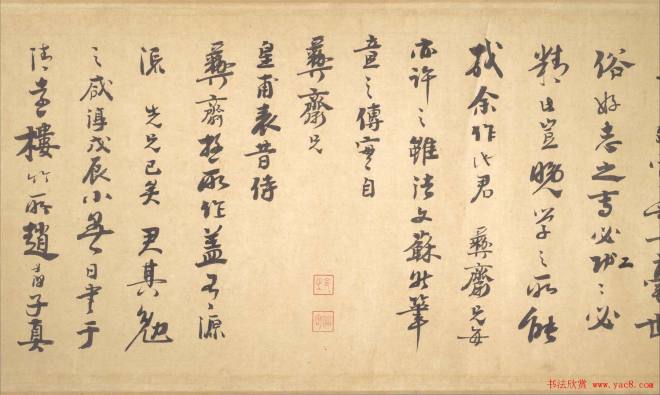 世
俗好志之專必工必
精出豈晚學之所能
哉余作此君彝齋兄每
亦許之雖法文蘇然筆
意之傳實自
彝齋兄
皇甫表昔侍
彝齋極所作蓋有源
派先兄已矣君其勉
之咸淳戊辰小春日書于
清遠樓竹所趙孟淳子真
书法欣赏 www.yac8.com